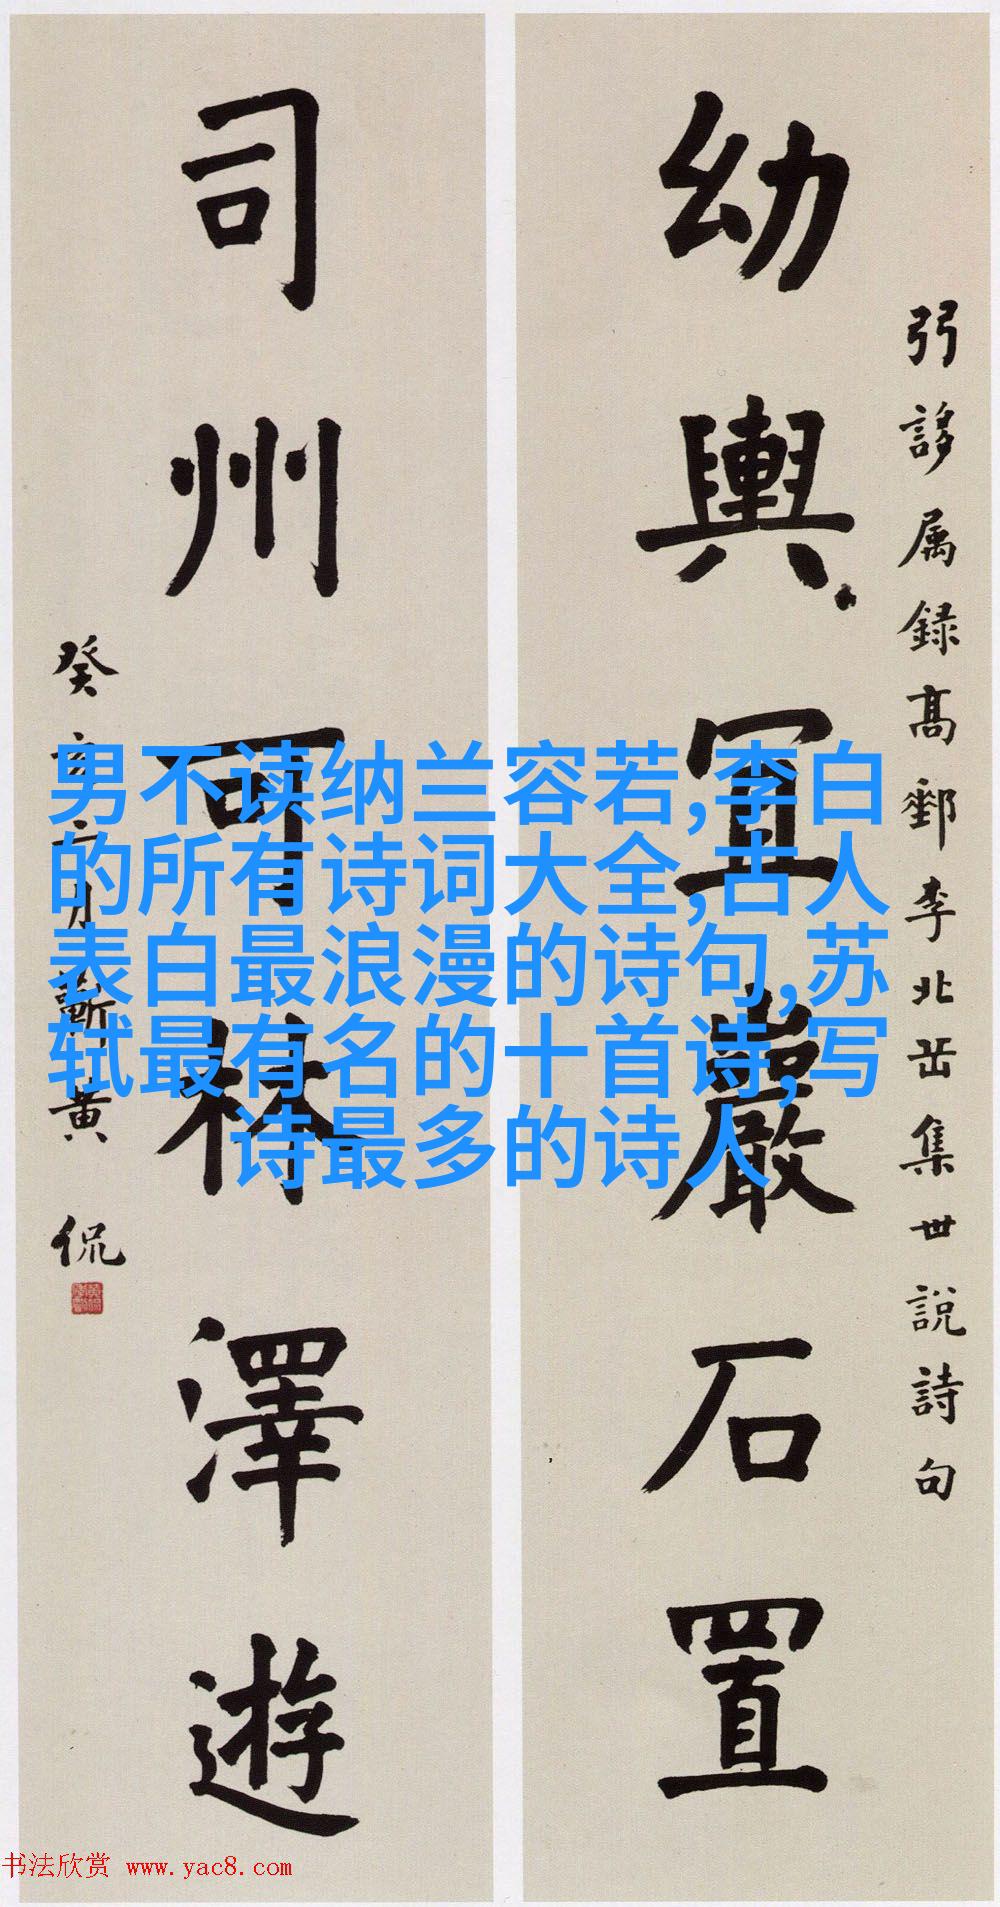 弜誃属録高郵李北苗集世說詩句
幼輿宜巖石置
司州可林澤遊
癸亥二月蘄黃侃
男不读纳兰容若,李白
的所有诗词大全,古人
表白最浪漫的诗句,苏
轼最有名的十首诗,写
诗最多的诗人
书法欣赏 www.yac8.com